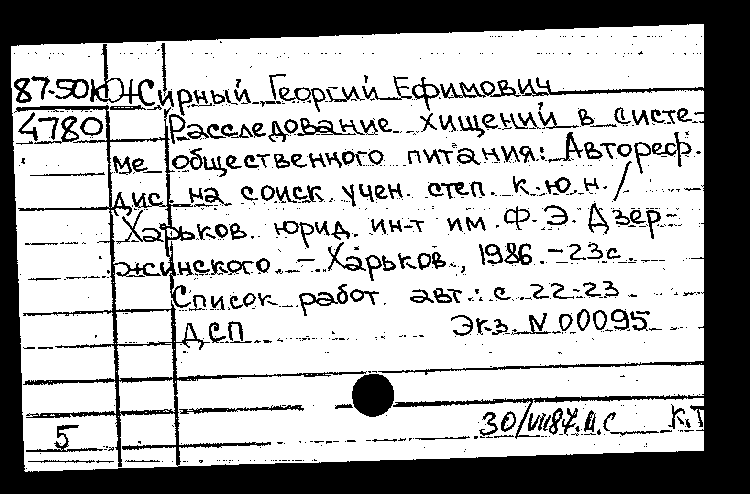 87-50Ю+Сирный, Георгий Ефимович
4780 Расследование хищений в систе-
ме общественного питания: Автореф.
дис. на соиск. учен. степ. к.ю.н. /
Харьков. юрид. ин-т им. Ф. Э. Дзер-
жинского. - Харьков, 1986. - 23с.
Список работ авт.: с. 22-23
ДСП Экз. N 00095
30/VII87. М.С К.Т
5